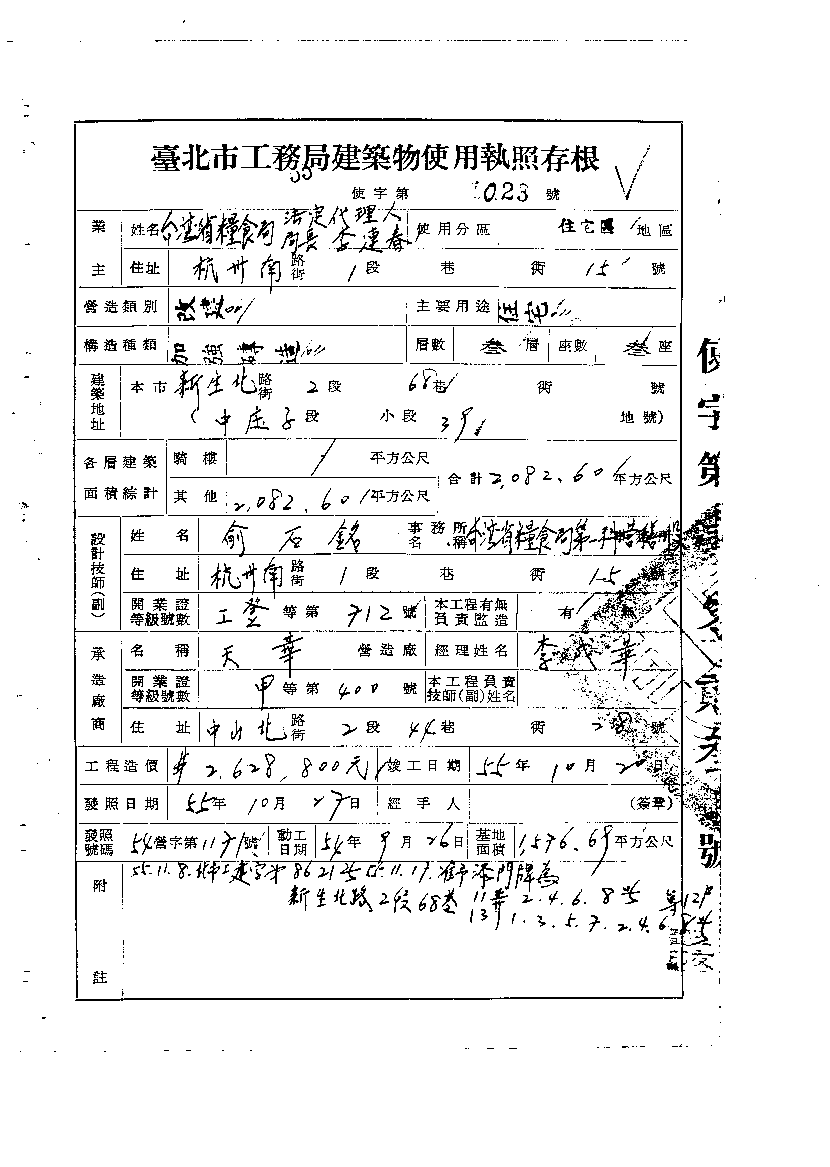 臺北市工務局建築物使用執照存根
55
使字第 1023 號
業主 姓名 台灣省糧食局 法定代理人 局長 李連春 使用分區 住宅區 地區
住址 杭州南 路街 1 段 巷 街 15 號
營造類別 改建 主要用途 住宅
構造種類 加強磚造 層數 叁 層 座數 叁 座
建築地址 本市 新生北 路街 2 段 68 巷 街 號
(中庄子段 小段 39 地號)
各層建築面積綜計 騎樓 / 平方公尺 合計 2,082.60 平方公尺
其他 2,082.60 平方公尺
設計技師(副) 姓名 俞石銘 事務所名稱 台灣省糧食局第一科營繕股
住址 杭州南 路街 1 段 巷 街 15
開業證等級號數 工登 等第 712 號 本工程有無負責監造 有
承造廠商 名稱 天華 營造廠 經理姓名 李成華
開業證等級號數 甲 等第 400 號 本工程負責技師(副)姓名
住址 中山北 路街 2 段 44 巷 街 28 號
工程造價 2,628,800元 竣工日期 55 年 10 月 20 日
發照日期 55 年 10 月 27 日 經手人 (簽章)
發照號碼 54 營字第 1171 號 動工日期 54 年 9 月 26 日 基地面積 1,576.69 平方公尺
附註 55.11.8.北市工建字第8621號 55.11.17.
新生北路2段68巷 11弄 2.4.6.8號 等12戶
13 1.3.5.7.2.4.6.8號
使字第 號